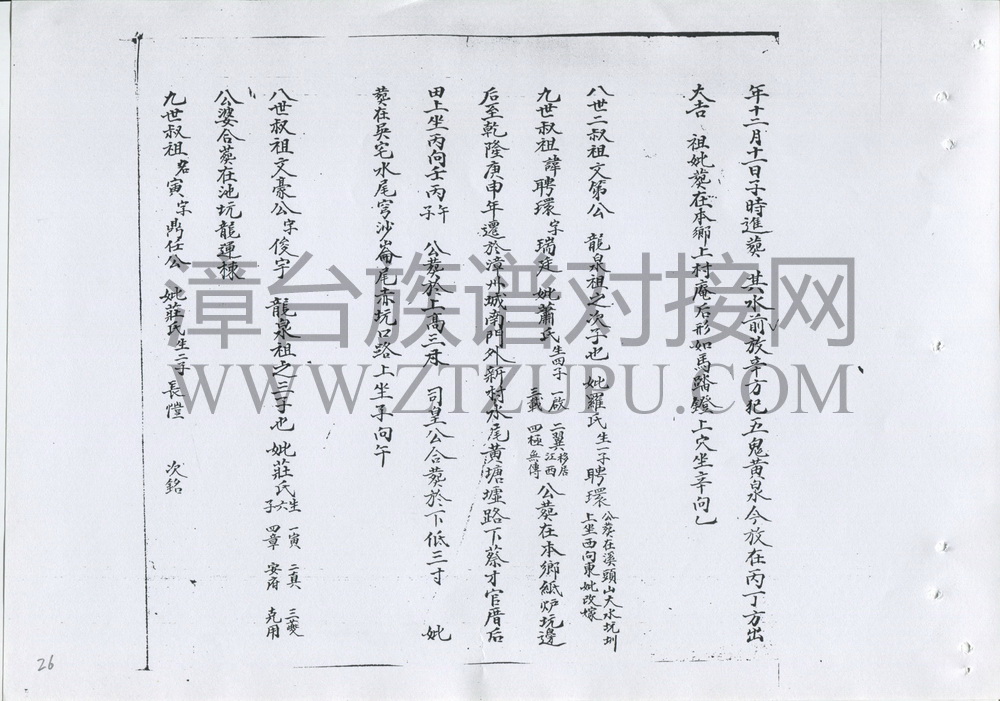 年十二月十一日子時進葬 其水前放辛方犯五鬼黄泉今放在丙丁方出
大吉 祖妣葬在本鄉上村庵后形如馬踏鐙上穴坐辛向乙
八世二叔祖文第公 龍泉祖之次子也 妣羅氏生一子聘環 公葬在溪頭山大水坑圳上坐西向東妣改嫁
九世叔祖諱聘環字瑞廷妣蕭氏生四子 一啟 二翼移居江西 三載 四極無傳 公葬在本鄉紙炉坑邊
后至乾隆庚申年遷於漳州城南門外新村水尾黄塘墟路下蔡才官厝后
田上坐丙向壬丙子午 公葬於上高三寸 司皇公合葬於下低三寸 妣
葬在吳宅水尾穹沙崙尾赤坑口路上坐子向午
八世叔祖文豪公字俊宇 龍泉祖之三子也 妣莊氏生六子 一寅 二真 三菱 四章 安府 克用
公婆合葬在池坑龍運棟
九世叔祖名寅字鼎任公 妣莊氏生二子 長愷 次銘
26
漳台族谱对接网
WWW.ZTZUPU.COM